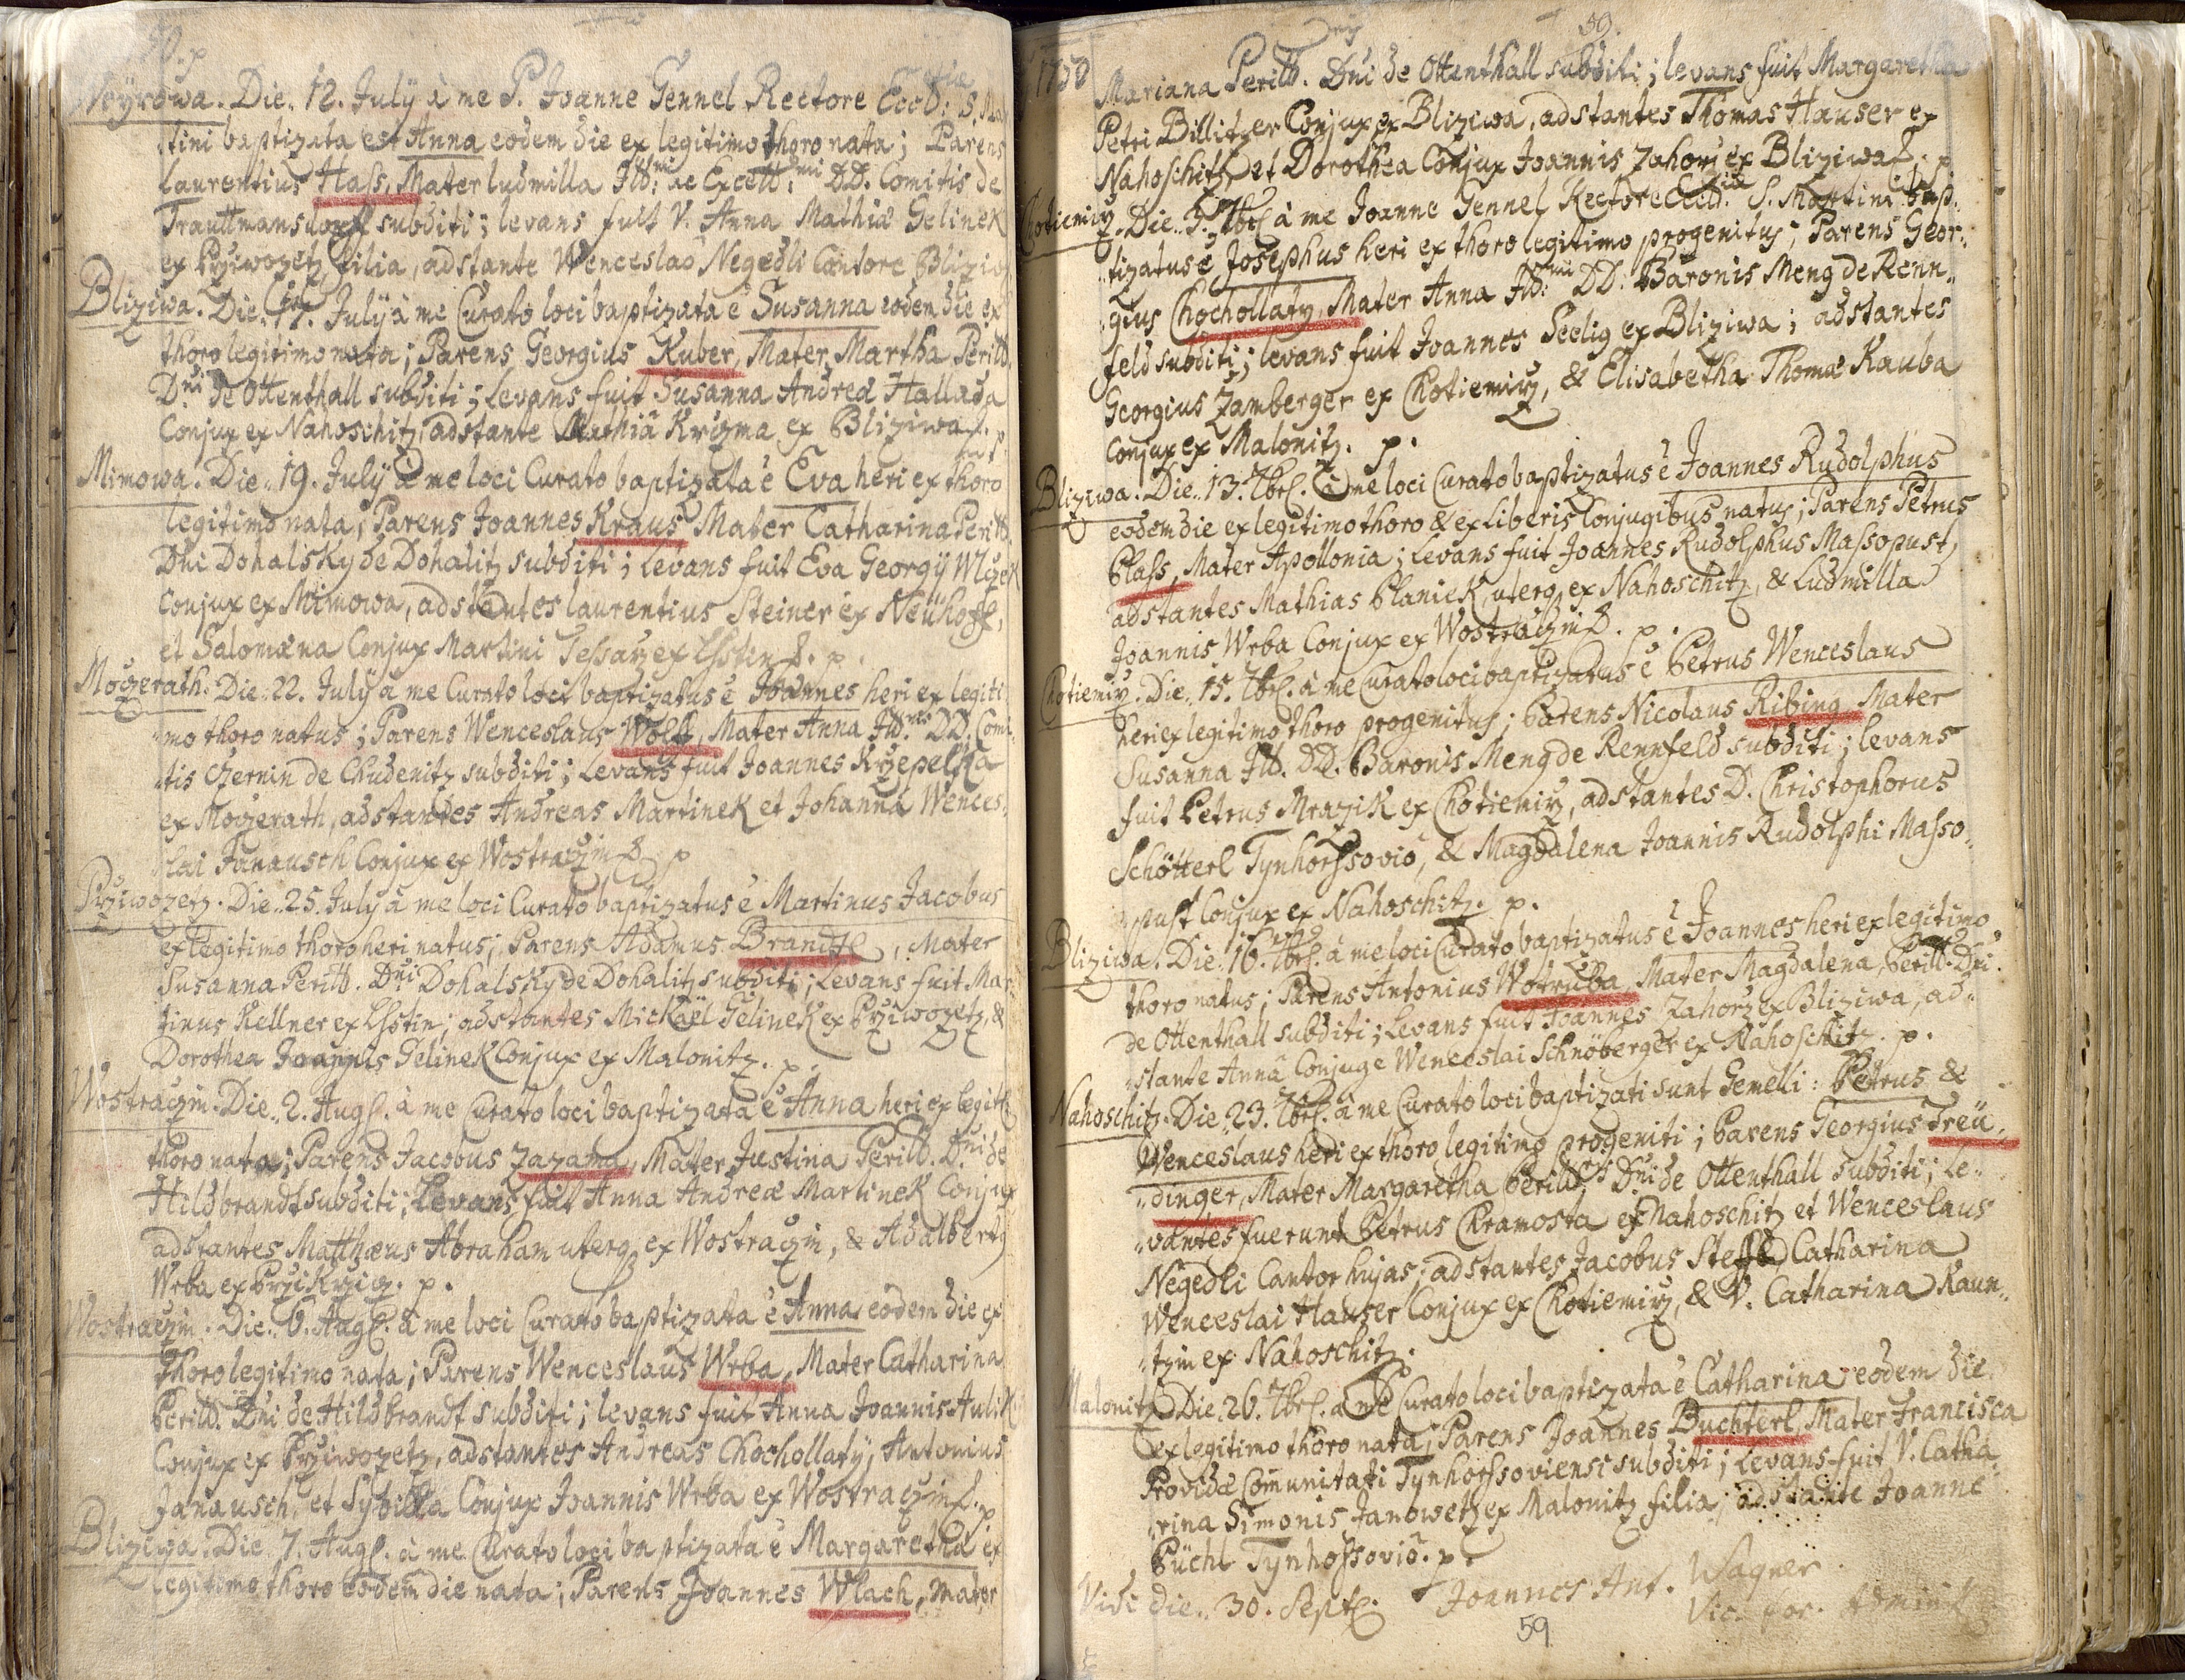 Noyrowa. Die.. 12. July à me P. Joanne Gennel Rectore Eccl: S. Mar
tini baptizata est Anna eodem die ex legitimo thoro nata; Parens
Laurentius Hass, Mater Ludmilla Ill: ac Excell: DD. Comitis de
Trauttmansdorff subditi; levans fuit V. Anna Mathiæ Gelinek
ex Prziwozetz filia, adstante Wenceslao Negedli Cantore Bliziw
Bliziwa. Die.. 17. July à me Curato loci baptizata ē Susanna eodem die ex
thoro legitimo nata; Parens Georgius Kuber, Mater Martha Perill.
Dni de Ottenthall subditi; Levans fuit Susanna Andreæ Hallada
Conjux ex Nahoschitz, adstante Mathiâ Krizma ex Bliziwa. p.
Mimowa. Die.. 19. July à me loci Curato baptizata ē Eva heri ex thoro
legitimo nata; Parens Joannes Kraus Mater Catharina Perill.
Dni Dohalsky de Dohalitz subditi; Levans fuit Eva Georgÿ Wlczek
Conjux ex Mimowa, adstantes Laurentius Steiner ex Neühoff,
et Salomæna Conjux Martini Tessarz ex Lhstin. p.
Moczerath. Die.. 22. July à me Curato loci baptizatus ē Joannes heri ex legiti
mo thoro natus; Parens Wenceslaus Wolf, Mater Anna Ill. DD. Comi
tis Czernin de Chudenitz subditi; Levans fuit Joannes Krzepelka
ex Moczerath, adstantes Andreas Martinek et Johanna Wences
lai Janausch Conjux ex Wostraczin. p
Prziwozetz. Die.. 25. July à me loci Curato baptizatus ē Martinus Jacobus
ex legitimo thoro heri natus; Parens Adamus Brandtl, Mater
Susanna Perill. Dni Dohalsky de Dohalitz subditi; Levans fuit Mar
tinus Kellner ex Lhstin; adstantes Mickaël Gelinek ex Przi wozetz, &
Dorothea Joannis Gelinek Conjux ex Malonitz. p.
Wostraczin. Die.. 2. Aug. à me Curato loci baptizata ē Anna heri ex legit
thoro nata; Parens Jacobus Zazama, Mater Justina Perill. Dni de
Hildbrandt subditi; Levans fuit Anna Andreæ Martinek Conjux
adstantes Matthæus Abraham uterq ex Wostraczin, & Adalberty
Wrba ex Przikrzicz. p.
Wostraczin. Die.. 6. Aug. à me loci Curato baptizata ē Anna eodem die ex
Thoro legitimo nata; Parens Wenceslaus Wrba, Mater Catharina
Perill. Dni de Hildbrandt subditi; levans fuit Anna Joannis Aulik
Conjux ex Przi wozetz, adstantes Andreas Chochollaty, Antonius
Janausch, et Sybilla Conjux Joannis Wrba ex Wostraczin. p
Bliziwa. Die.. 7. Aug. à me Curato loci baptizata ē Margaretha ex
legitimo thoro eodem die nata; Parens Joannes Wlach, Mater
59.
1750
Mariana Perill. Dni de Ottenthall subditi; levans fuit Margaretha
Petri Billitzer Conjux ex Bliziwa, adstantes Thomas Hauser ex
Nahoschitz et Dorothea Conjux Joannis Zahorz ex Bliziwa. p
Chotiemirz. Die.. 7br. à me Joanne Gennel Rectore Eccl. S. Martini bap
tizatus ē Josephus heri ex thoro legitimo progenitus; Parens Geor
gius Chochollaty, Mater Anna Ill: DD: Baronis Meng de Renn
feld subditi; levans fuit Joannes Seelig ex Bliziwa; adstantes
Georgius Zamberger ex Chotiemirz, & Elisabetha Thomæ Kauba
Conjux ex Malonitz. p.
Bliziwa. Die.. 13. 7br. à me loci Curato baptizatus ē Joannes Rudolphus
eodem die ex legitimo thoro & ex Liberis Conjugibus natus; Parens Petrus
Blass, Mater Apollonia; Levans fuit Joannes Rudolphus Massopust,
adstantes Mathias Blaniek, uterq ex Nahoschitz, & Ludmilla
Joannis Wrba Conjux ex Wostraczin. p.
Chotiemirz. Die.. 15. 7br. à me Curato loci baptizatus ē Petrus Wenceslaus
heri ex legitimo thoro progenitus; Parens Nicolaus Ribing, Mater
Susanna Ill. DD. Baronis Meng de Rennfeld subditi; levans
fuit Petrus Mrazik ex Chotiemirz, adstantes D. Christophorus
Schötterl Tynhorssovio, & Magdalena Joannis Rudolphi Masso
pust Conjux ex Nahoschitz. p.
Bliziwa. Die.. 16. 7br. à me loci Curato baptizatus ē Joannes heri ex legitimo
thoro natus; Parens Antonius Wotruba, Mater Magdalena, Perill. Dni.
de Ottenthall subditi; Levans fuit Joannes Zahorz ex Bliziwa, ad
stante Annâ Conjuge Wenceslai Schnöberger ex Nahoschitz. p.
Nahoschitz. Die.. 23. 7br. à me Curato loci baptizati sunt Gemelli: Petrus &
Wenceslaus heri ex thoro legitimo progeniti; Parens Georgius Treü
dinger, Mater Margaretha Perill. Dni de Ottenthall subditi; Le
vantes fuerunt Petrus Chramosta ex Nahoschitz et Wenceslaus
Negedli Cantor hujas; adstantes Jacobus Steffl, Catharina
Wenceslai Hauser Conjux ex Chotiemirz, & V. Catharina Kaun
tzin ex Nahoschitz.
Malonitz. Die. 26. 7br. à me Curato loci baptizata ē Catharina eodem die
ex legitimo thoro nata; Parens Joannes Buchterl, Mater Francisca
Providæ Comunitati Tynhorssoviensi subditi; Levans fuit V. Catha
rina Simonis Janowetz ex Malonitz filia; adstante Joanne
Büchl Tynhossovio. p.
Vidi die.. 30. Sept. Joannes Ant. Wagner
Vic. for. Admin
59